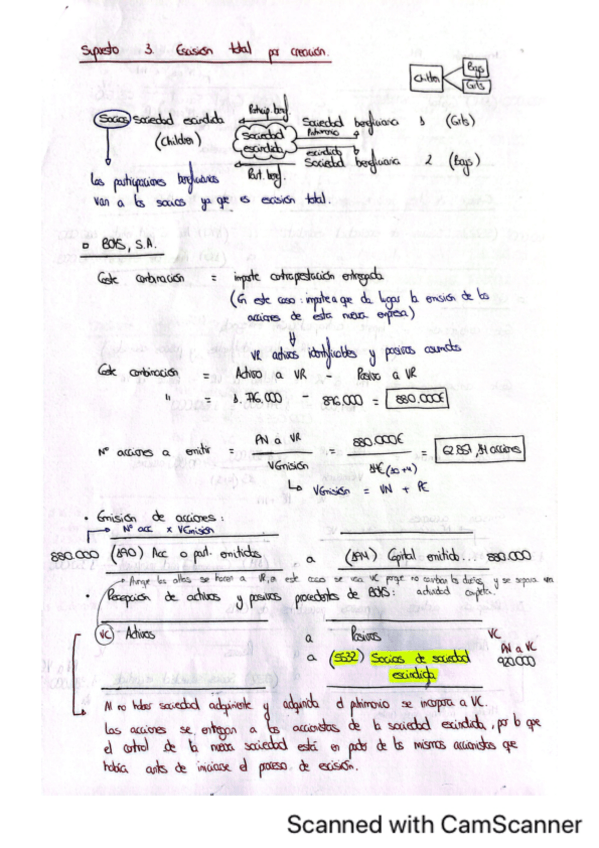 Supuesto 3. Escisión total por creación.
Children
Boys
Girls
Socios sociedad escindida
(Children)
Particip. benef.
Sociedad escindida
Patrimonio escindido
Part. benef.
Sociedad beneficiaria 1 (Girls)
Sociedad beneficiaria 2 (Boys)
Las participaciones beneficiarias
van a los socios ya que es escisión total.
BOYS, S.A.
Coste combinación = importe contraprestación entregada
(En este caso: importe a que da lugar la emisión de las
acciones de esta nueva empresa)
VR activos identificables y pasivos asumidos
Coste combinación = Activo a VR - Pasivo a VR
" = 1.776.000 - 896.000 = 880.000€
Nº acciones a emitir = PN a VR / VEmisión = 880.000€ / 14€ (10+4) = 62.857,14 acciones
VEmisión = VN + PE
• Emisión de acciones:
Nº acc. x VEmisión
880.000 (190) Acc. o part. emitidas a (194) Capital emitido... 880.000
Aunque las altas se hacen a VR, en este caso se usa VC porque no cambian los dueños, y se separa una actividad completa.
• Recepción de activos y pasivos procedentes de BOYS:
VC Activos a Pasivos VC
a (5532) Socios de sociedad escindida PN a VC 920.000
Al no haber sociedad adquirente y adquirida el patrimonio se incorpora a VC.
Las acciones se entregan a los accionistas de la sociedad escindida, por lo que
el control de la nueva sociedad está en poder de los mismos accionistas que
había antes de iniciarse el proceso de escisión.
Scanned with CamScanner